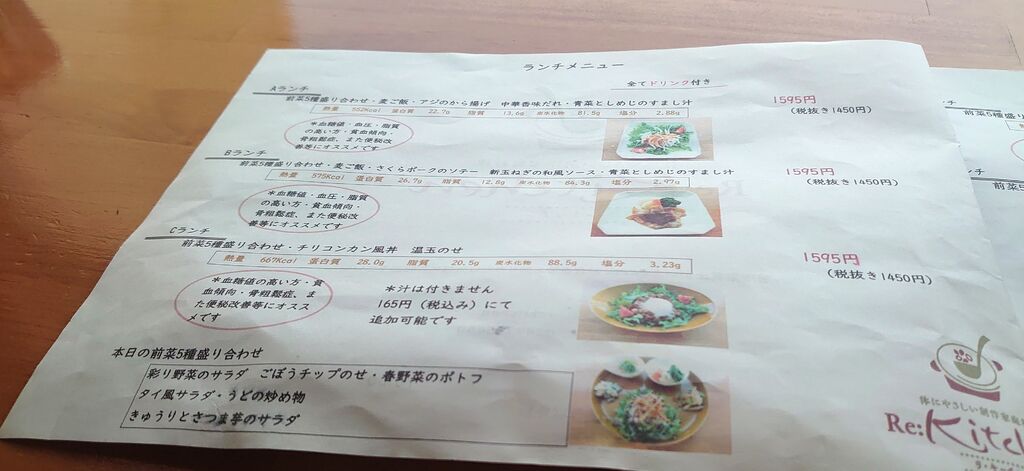 ランチメニュー
全てドリンク付き
Aランチ
前菜5種盛り合わせ・麦ご飯・アジのから揚げ 中華香味だれ・青菜としめじのすまし汁
熱量 552Kcal 蛋白質 22.7g 脂質 13.6g 炭水化物 81.5g 塩分 2.88g
1595円
(税抜き1450円)
＊血糖値・血圧・脂質
の高い方・貧血傾向・
骨粗鬆症、また便秘改
善等にオススメです
Bランチ
前菜5種盛り合わせ・麦ご飯・さくらポークのソテー 新玉ねぎの和風ソース・青菜としめじのすまし汁
熱量 575Kcal 蛋白質 26.7g 脂質 12.8g 炭水化物 84.3g 塩分 2.97g
1595円
(税抜き1450円)
＊血糖値・血圧・脂質
の高い方・貧血傾向・
骨粗鬆症、また便秘改
善等にオススメです
Cランチ
前菜5種盛り合わせ・チリコンカン風丼 温玉のせ
熱量 667Kcal 蛋白質 28.0g 脂質 20.5g 炭水化物 88.5g 塩分 3.23g
1595円
(税抜き1450円)
＊血糖値の高い方・貧
血傾向・骨粗鬆症、ま
た便秘改善等にオスス
メです
＊汁は付きません
165円（税込み）にて
追加可能です
本日の前菜5種盛り合わせ
彩り野菜のサラダ ごぼうチップのせ・春野菜のポトフ
タイ風サラダ・うどの炒め物
きゅうりとさつま芋のサラダ
体にやさしい創作家庭
Re:Kitc